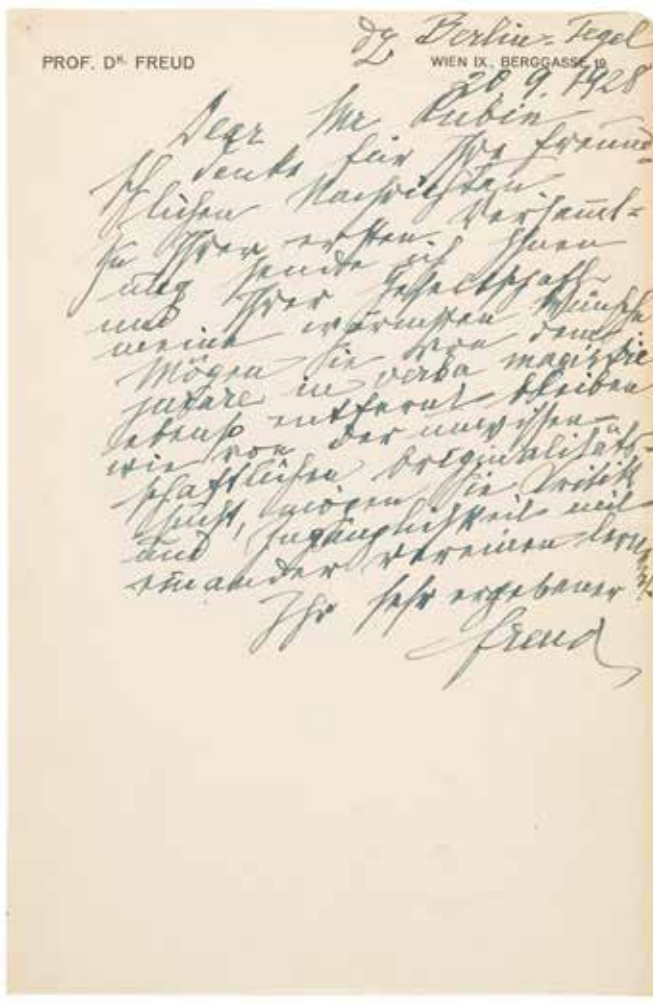 dz Berlin-Tegel
PROF. DR. FREUD
WIEN IX., BERGGASSE 19
20. 9. 1928
Dear Mr Rubin
Ich danke für Ihre freund-
lichen Nachrichten.
Zu Ihrer ersten Versamml-
ung sende ich Ihnen
und Ihrer Gesellschaft
meine wärmsten Wünsche
Mögen Sie von dem:
jurare in verba magistri
ebenso entfernt bleiben
wie von der unwissen-
schaftlichen Originalitäts-
sucht, mögen Sie Kritik
und Zugänglichkeit mit
einander vereinen lernen.
Ihr sehr ergebener
Freud